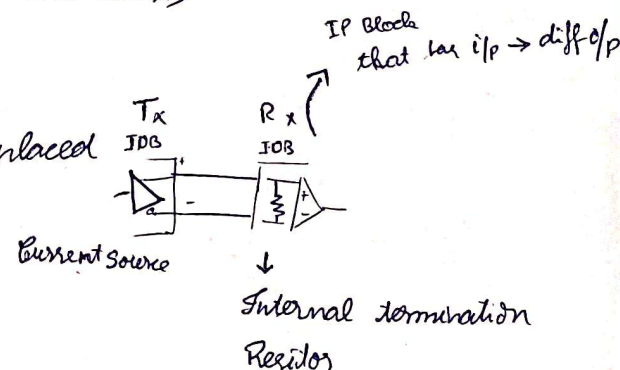 IP Block
that has i/p → diff o/p
Tx
Rx
placed
IOB
IOB
+
-
+
-
Current Source
↓
Internal termination
Resistor